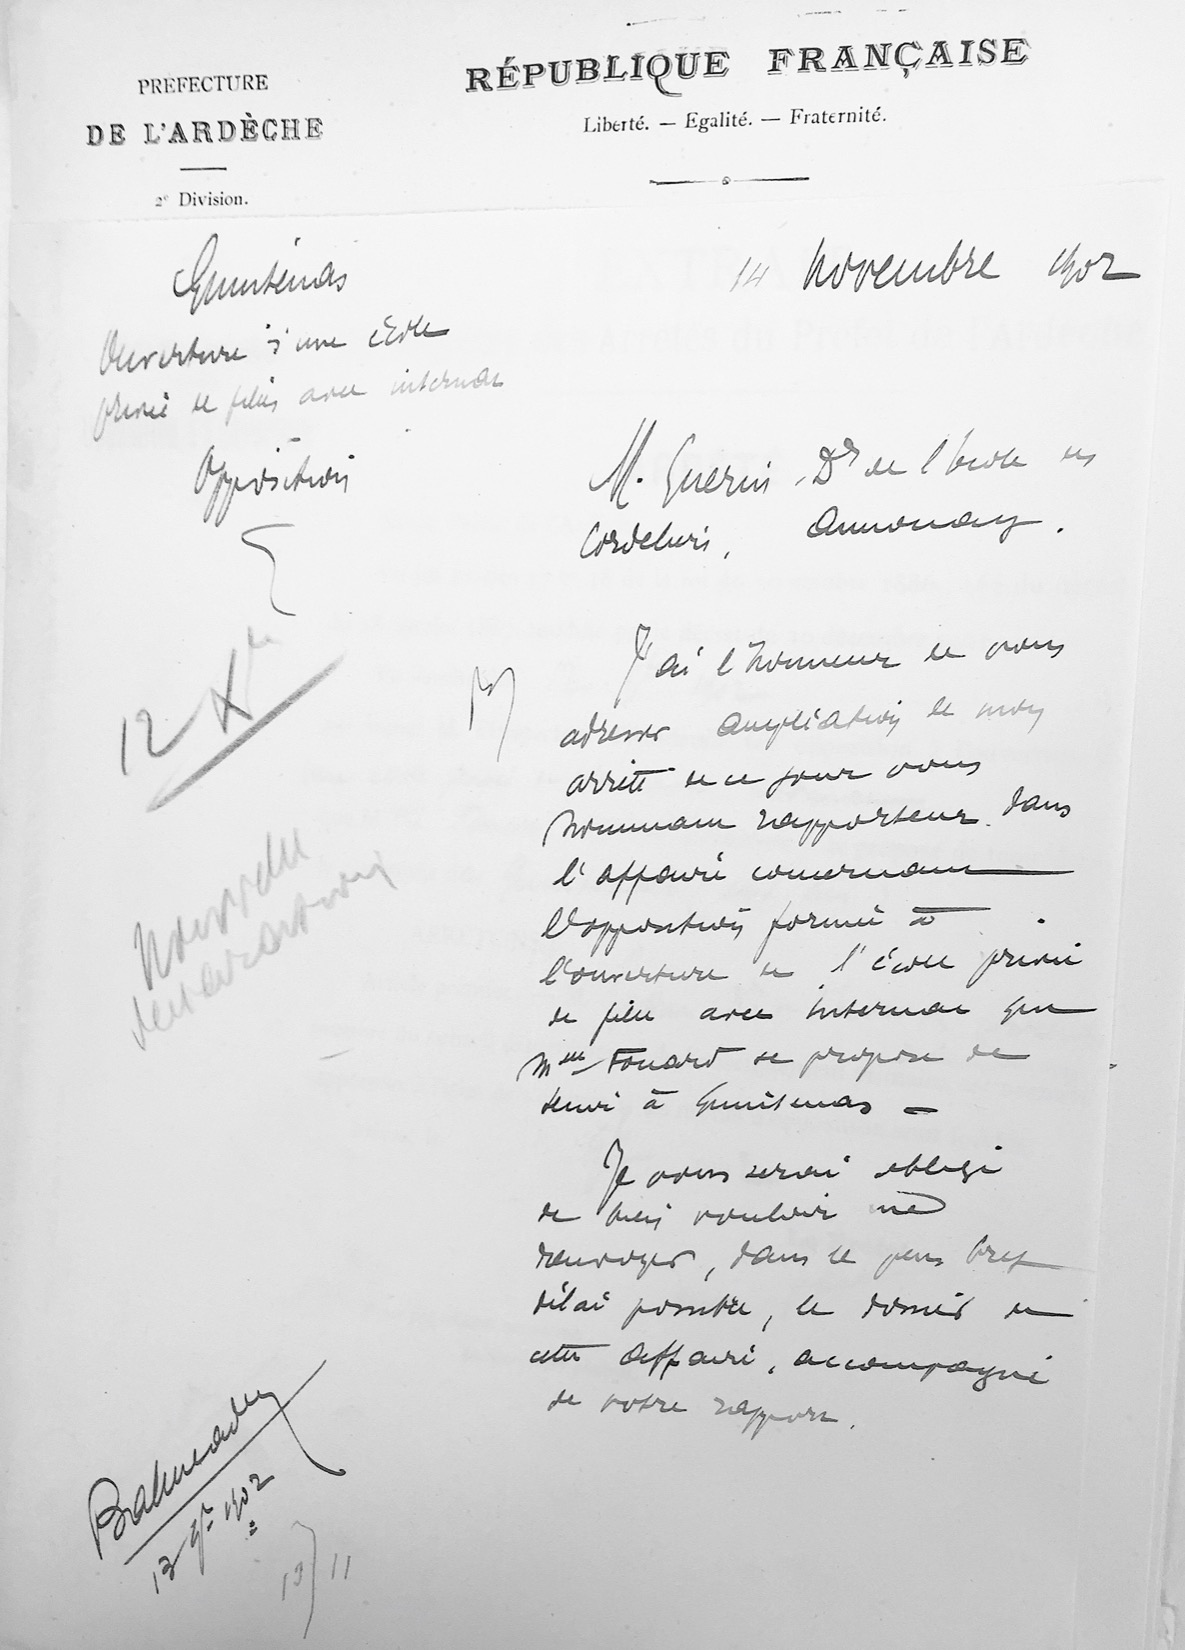 PREFECTURE
DE L'ARDÈCHE
2e Division.
RÉPUBLIQUE FRANÇAISE
Liberté. — Egalité. — Fraternité.
14 novembre 1902
Gruntenas
Ouverture d'une école
privée de filles avec internat
Opposition
12 Xbre
Nouvelle
Balmadier
13 9bre 1902
13/11
M. Guerin, Dr de l'école des
Cordeliers, Annonay.
J'ai l'honneur de vous
adresser ampliation de mon
arrêté de ce jour vous
nommant rapporteur dans
l'affaire concernant
l'opposition formée à
l'ouverture de l'école privée
de filles avec internat que
Mme Fouard se propose de
tenir à
Je vous serai obligé
de bien vouloir me
renvoyer, dans le plus bref
délai possible, le dossier de
cette affaire, accompagné
de votre rapport.